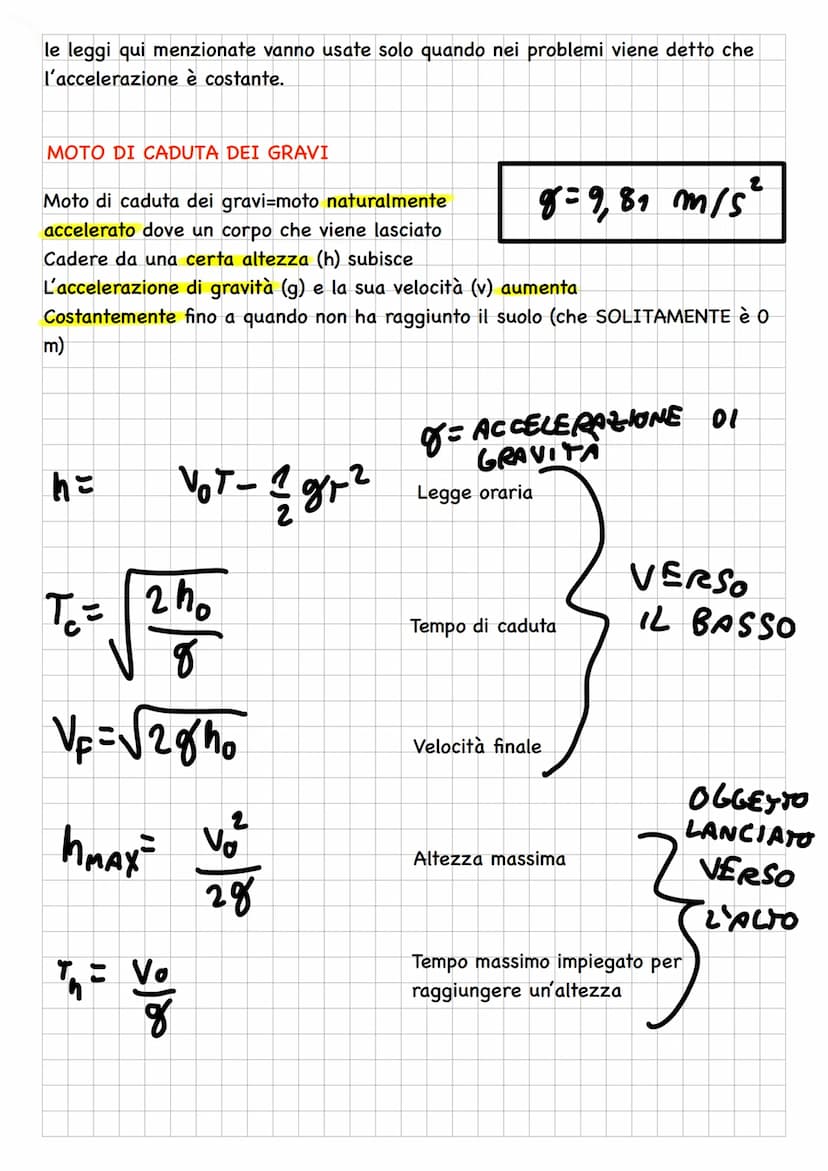 le leggi qui menzionate vanno usate solo quando nei problemi viene detto che
l'accelerazione è costante.
MOTO DI CADUTA DEI GRAVI
g=9,81 m/s²
Moto di caduta dei gravi=moto naturalmente
accelerato dove un corpo che viene lasciato
Cadere da una certa altezza (h) subisce
L'accelerazione di gravità (g) e la sua velocità (v) aumenta
Costantemente fino a quando non ha raggiunto il suolo (che SOLITAMENTE è 0
m)
g= ACCELERAZIONE DI
GRAVITÀ
h= V₀T-½gT²
Legge oraria
VERSO
IL BASSO
Tc=√(2h₀/g)
Tempo di caduta
VF=√2gh₀
Velocità finale
OGGETTO
LANCIATO
VERSO
L'ALTO
hMAX= V₀²/2g
Altezza massima
Th= V₀/g
Tempo massimo impiegato per
raggiungere un'altezza